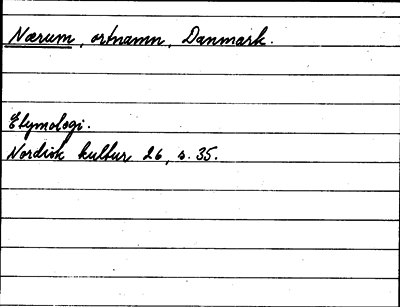 Nærum, ortnamn, Danmark.
Etymologi.
Nordisk kultur 26, s. 35.